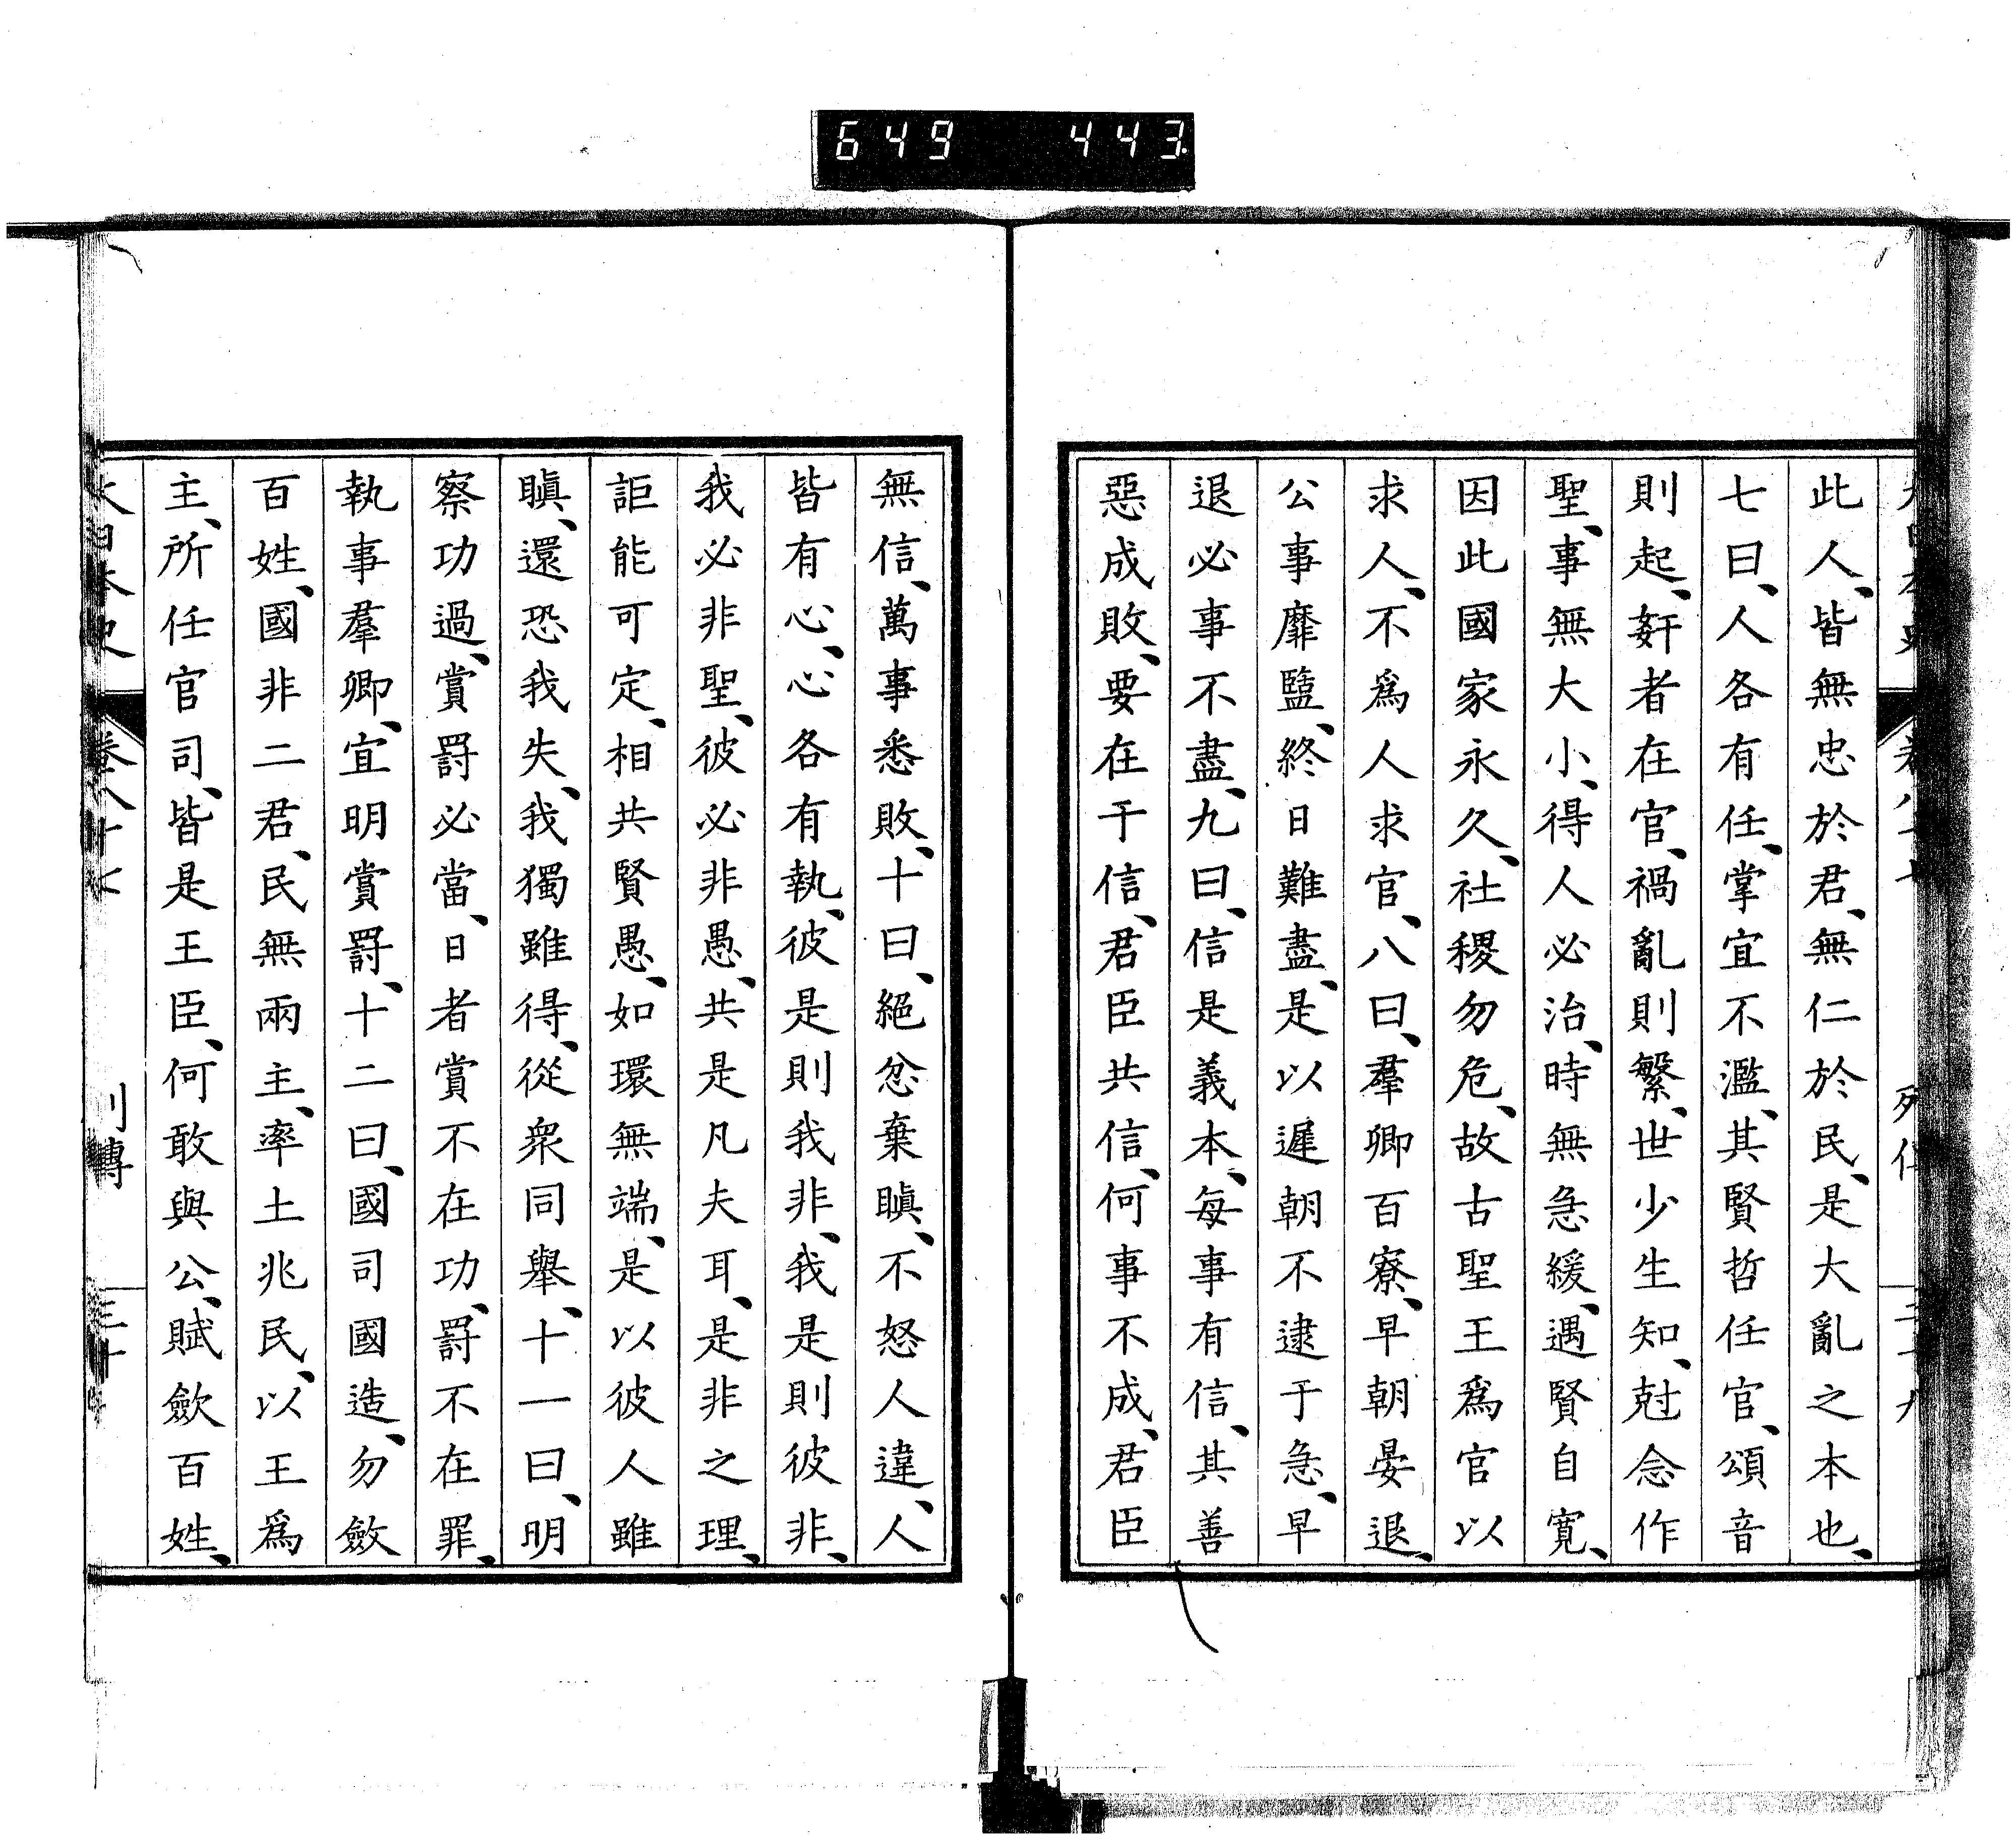 649 443
此人、皆無忠於君、無仁於民、是大亂之本也、
七曰、人各有任、掌宜不濫、其賢哲任官、頌音
則起、姧者在官、禍亂則繁、世少生知、尅念作
聖、事無大小、得人必治、時無急緩、遇賢自寬、
因此國家永久、社稷勿危、故古聖王爲官以
求人、不爲人求官、八曰、羣卿百寮、早朝晏退、
公事靡盬、終日難盡、是以遲朝不逮于急、早
退必事不盡、九曰、信是義本、每事有信、其善
惡成敗、要在于信、君臣共信、何事不成、君臣
無信、萬事悉敗、十曰、絕忿棄瞋、不怒人違、人
皆有心、心各有執、彼是則我非、我是則彼非、
我必非聖、彼必非愚、共是凡夫耳、是非之理、
詎能可定、相共賢愚、如環無端、是以彼人雖
瞋、還恐我失、我獨雖得、從衆同舉、十一曰、明
察功過、賞罸必當、日者賞不在功、罸不在罪、
執事羣卿、宜明賞罸、十二曰、國司國造、勿斂
百姓、國非二君、民無兩主、率土兆民、以王爲
主、所任官司、皆是王臣、何敢與公、賦歛百姓、
大日本史 卷八十七 列傳 三十